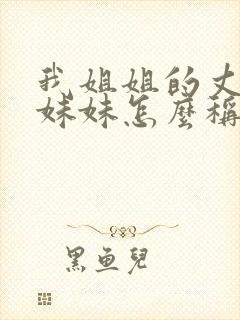 我姐姐的丈
妹妹怎麼稱
黑魚兒